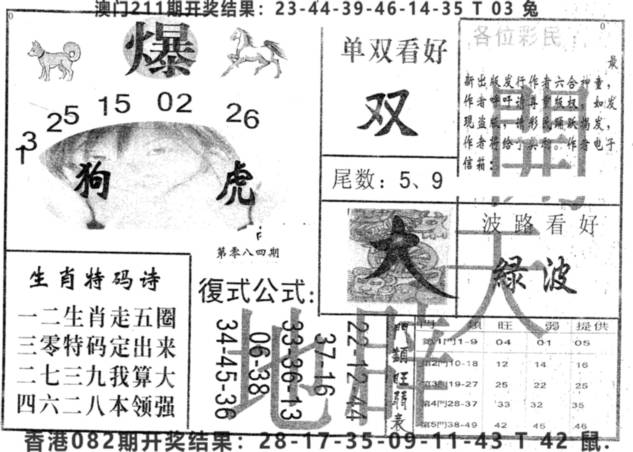 澳门211期开奖结果：23-44-39-46-14-35 T 03 兔
爆
25 15 02 26
13
狗 虎
第零八四期
单双看好
双
尾数：5、9
各位彩民：
最
新出版发行作者六合神童，
作者呼吁请尊重版权，如发
现盗版，请彩民踊跃揭发，
作者将给予奖
作者电子
信箱：
開
大
波路看好
绿波
天
地
生肖特码诗
一二生肖走五圈
三零特码定出来
二七三九我算大
四六二八本领强
復式公式:
34-45-36
06-38
33-36-13
37-16
22-12-44
門類旺弱表
門 類 旺 弱 提供
第1門1-9 04 01 05
第2門10-18 12 14 16
第3門19-27 25 22 25
第4門28-37 33 32 35
第5門38-49 42 45 46
香港082期开奖结果：28-17-35-09-11-43 T 42 鼠.